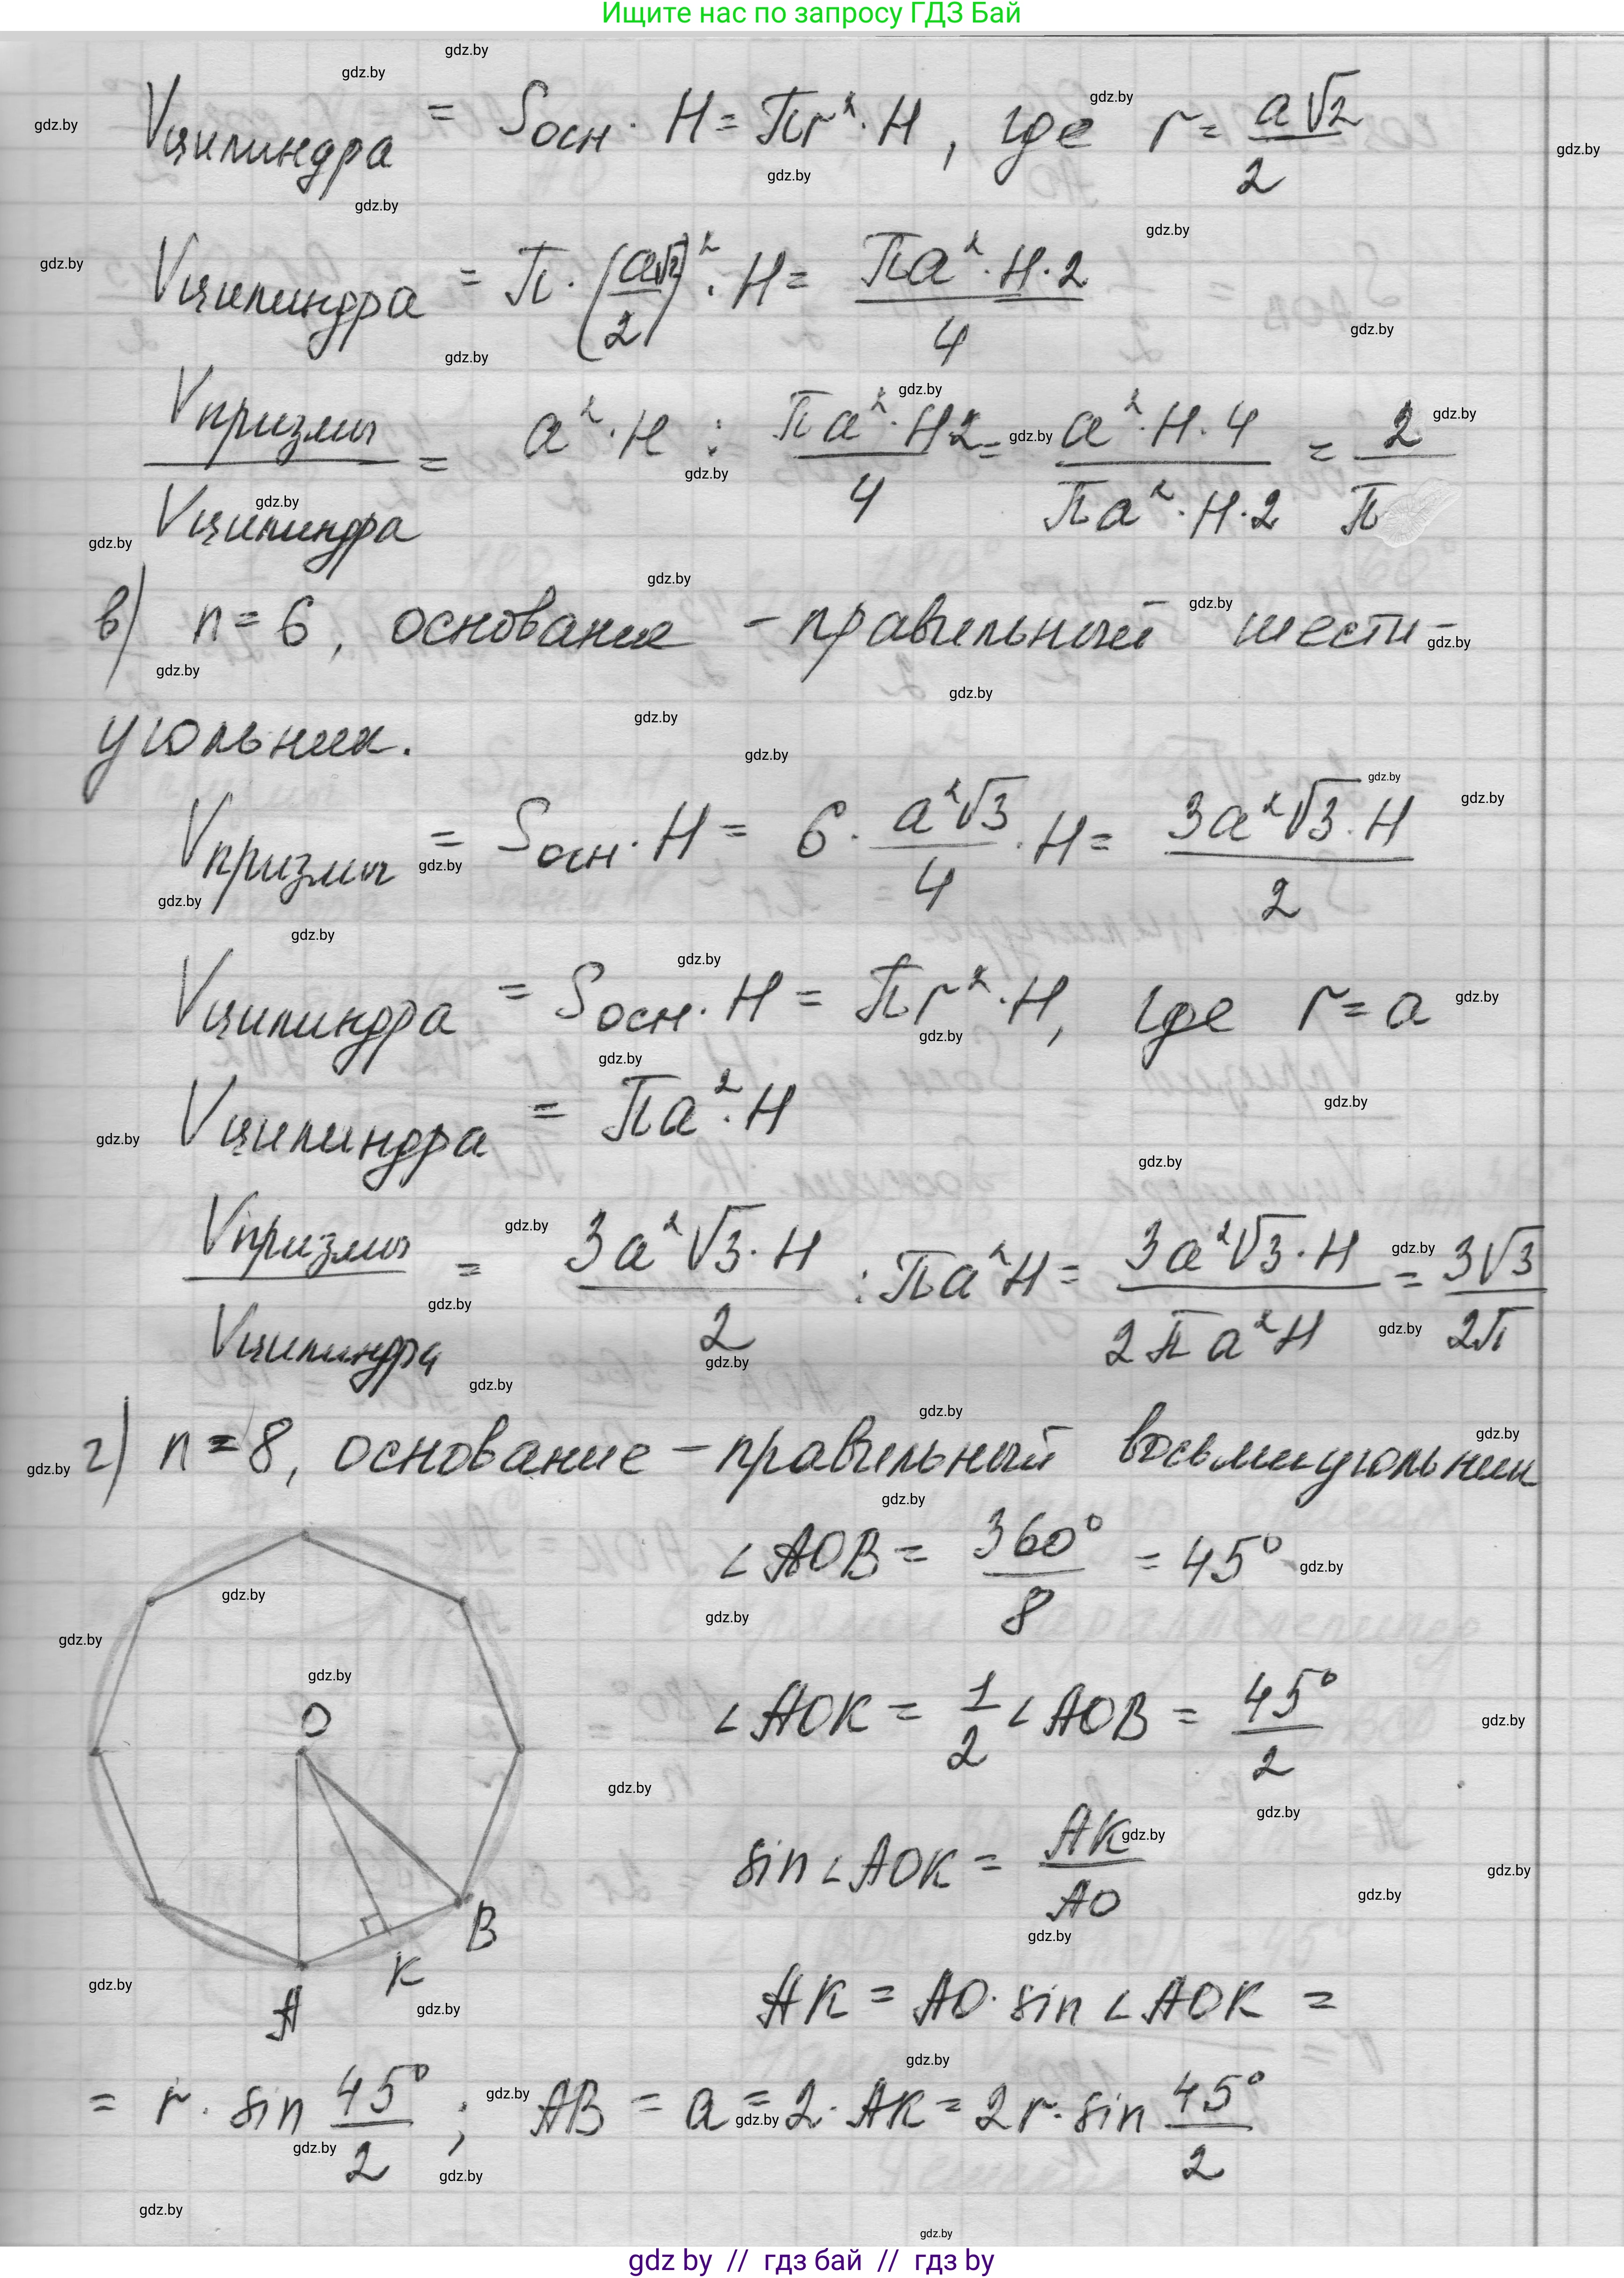 Ищите нас по запросу ГДЗ Бай
Vцилиндра = Sосн · H = πr² · H, где r = a√2/2
Vцилиндра = π · (a√2/2)² · H = πa² · H · 2/4
Vпризмы/Vцилиндра = a² · H : πa² · H2/4 = a² · H · 4/πa² · H · 2 = 2/π
в) n = 6, основание – правильный шести-
угольник.
Vпризмы = Sосн · H = 6 · a²√3/4 · H = 3a²√3 · H/2
Vцилиндра = Sосн · H = πr² · H, где r = a
Vцилиндра = πa² · H
Vпризмы/Vцилиндра = 3a²√3 · H/2 : πa²H = 3a²√3 · H/2πa²H = 3√3/2π
г) n = 8, основание – правильный восьмиугольник
∠AOB = 360°/8 = 45°
O
∠AOK = 1/2 ∠AOB = 45°/2
sin∠AOK = AK/AO
B
K
A
AK = AO · sin∠AOK =
= r · sin 45°/2 ; AB = a = 2 · AK = 2r · sin 45°/2
gdz.by
gdz by // гдз бай // гдз by